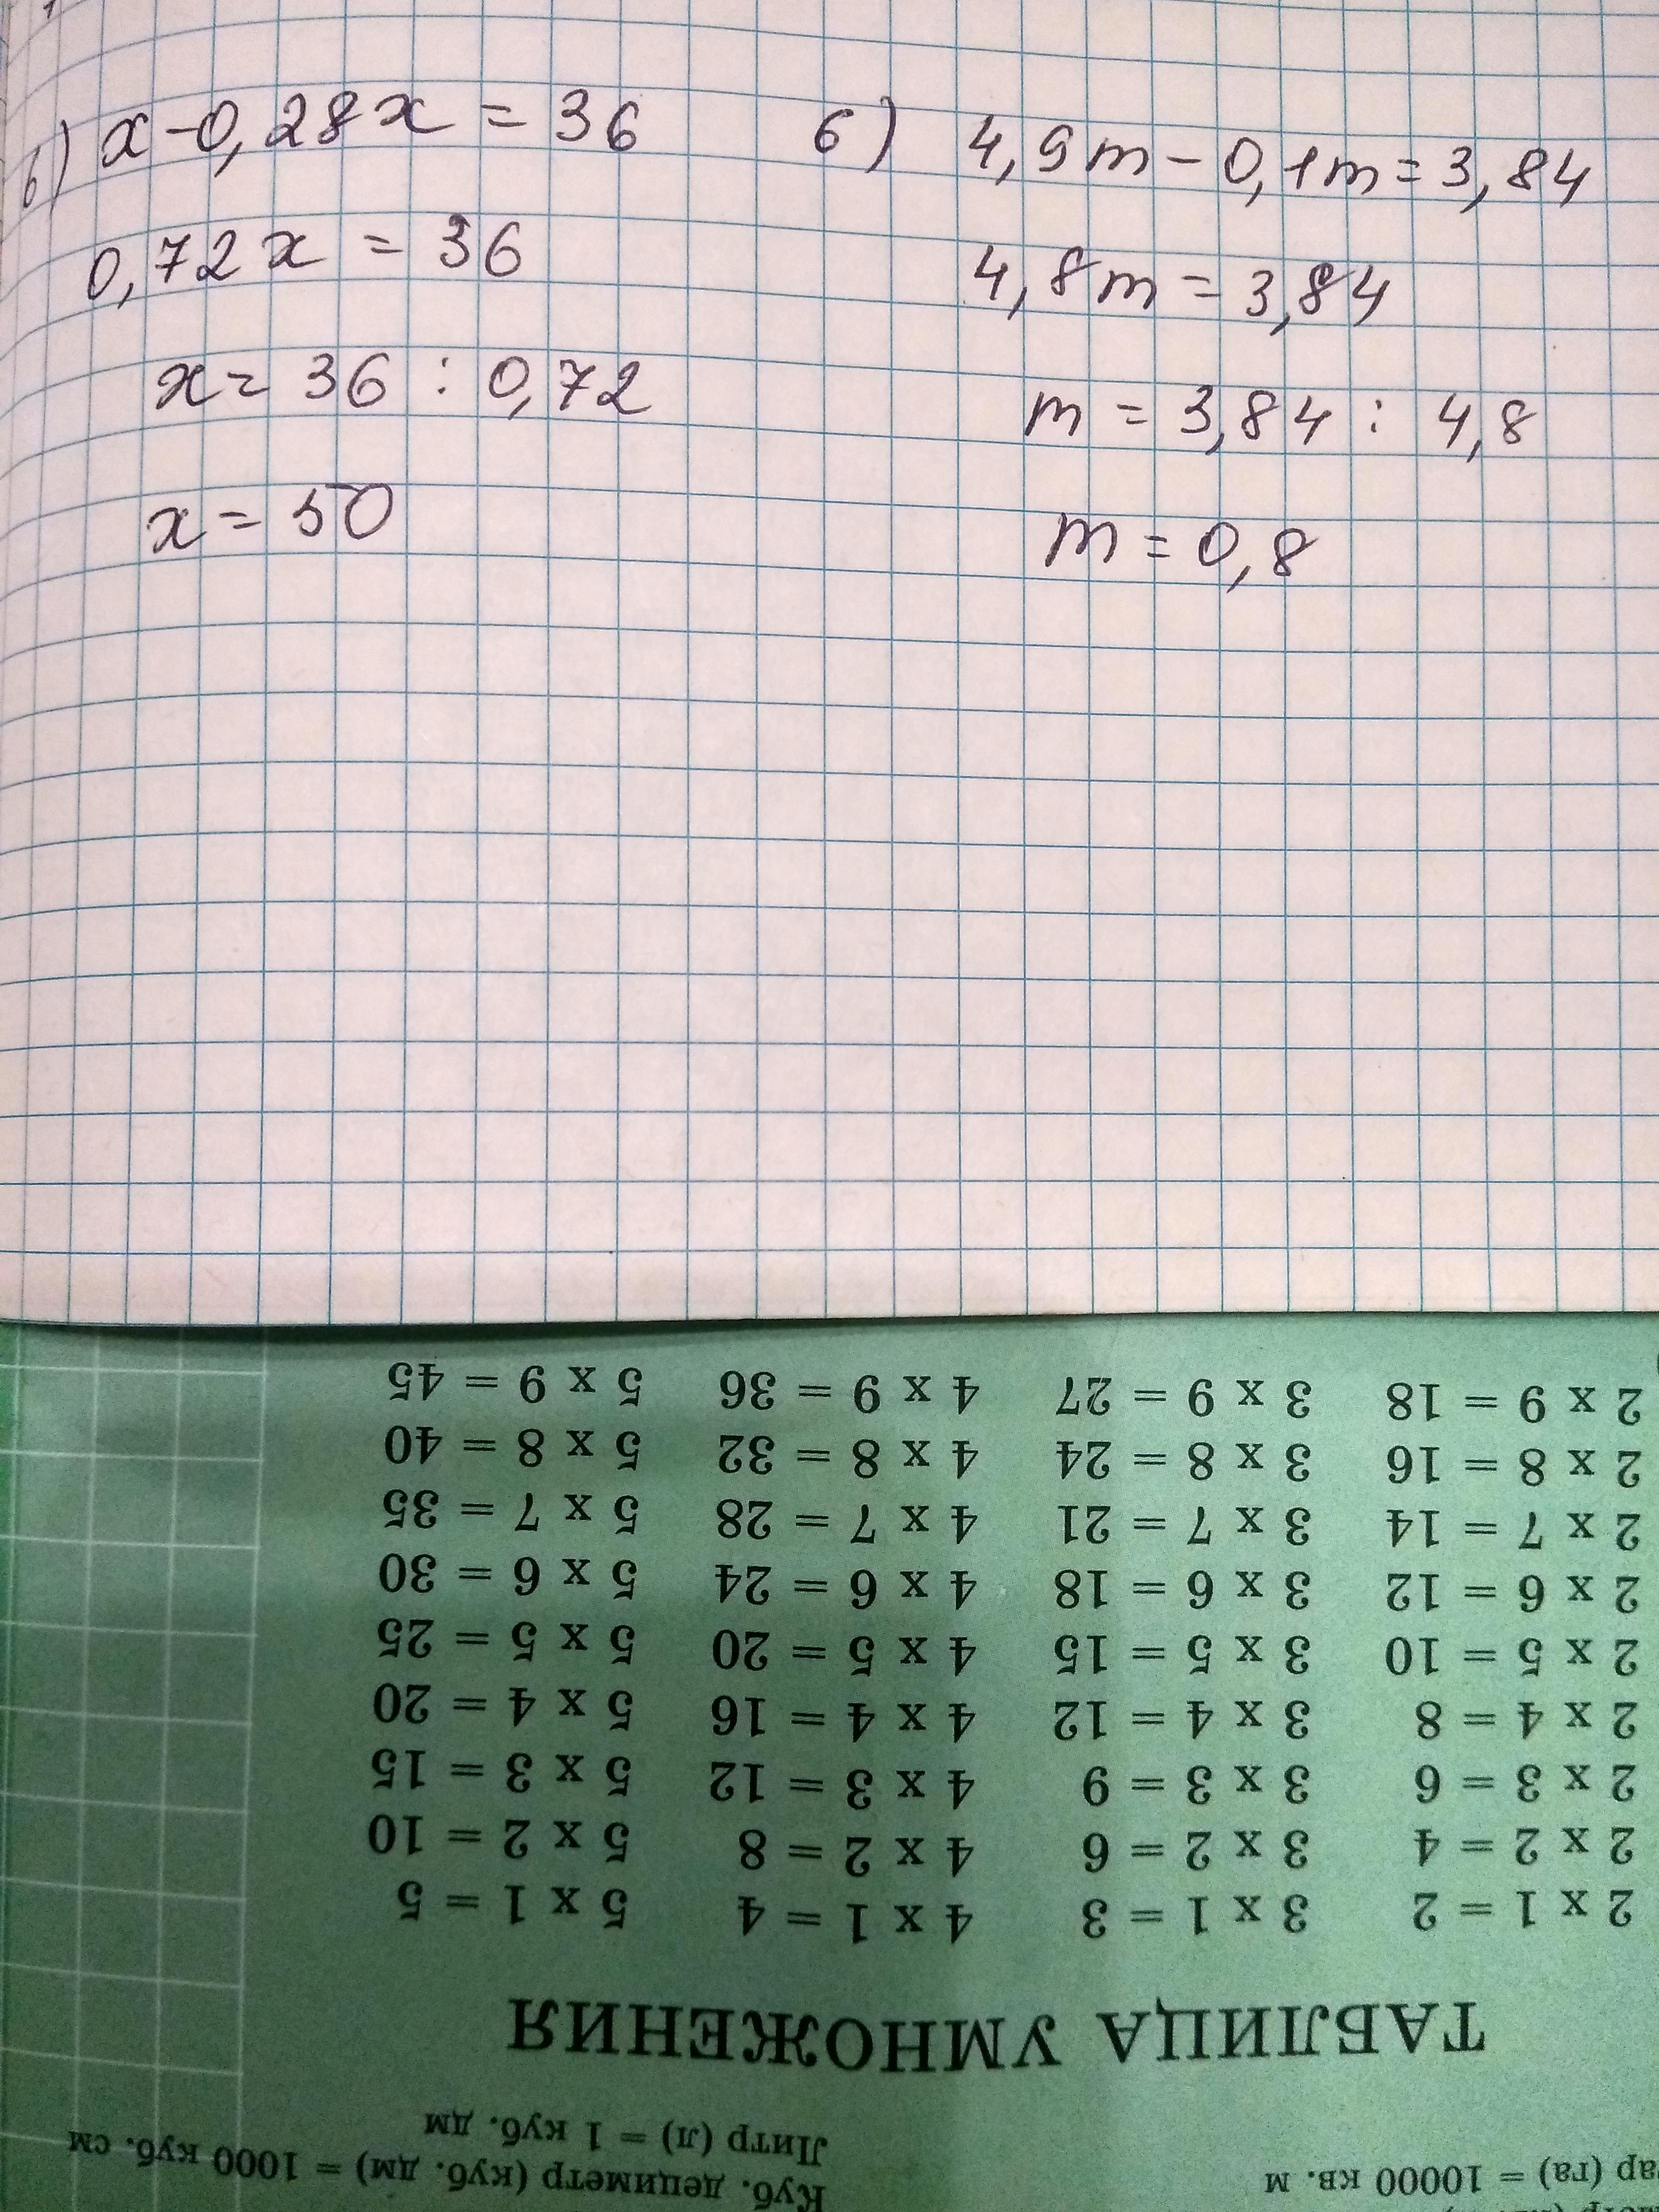 б) x - 0,28x = 36
0,72x = 36
x = 36 : 0,72
x = 50
б) 4,9m - 0,1m = 3,84
4,8m = 3,84
m = 3,84 : 4,8
m = 0,8
(га) = 10000 кв. м
Куб. дециметр (куб. дм) = 1000 куб. см
Литр (л) = 1 куб. дм
ТАБЛИЦА УМНОЖЕНИЯ
2 x 1 = 2 3 x 1 = 3 4 x 1 = 4 5 x 1 = 5
2 x 2 = 4 3 x 2 = 6 4 x 2 = 8 5 x 2 = 10
2 x 3 = 6 3 x 3 = 9 4 x 3 = 12 5 x 3 = 15
2 x 4 = 8 3 x 4 = 12 4 x 4 = 16 5 x 4 = 20
2 x 5 = 10 3 x 5 = 15 4 x 5 = 20 5 x 5 = 25
2 x 6 = 12 3 x 6 = 18 4 x 6 = 24 5 x 6 = 30
2 x 7 = 14 3 x 7 = 21 4 x 7 = 28 5 x 7 = 35
2 x 8 = 16 3 x 8 = 24 4 x 8 = 32 5 x 8 = 40
2 x 9 = 18 3 x 9 = 27 4 x 9 = 36 5 x 9 = 45